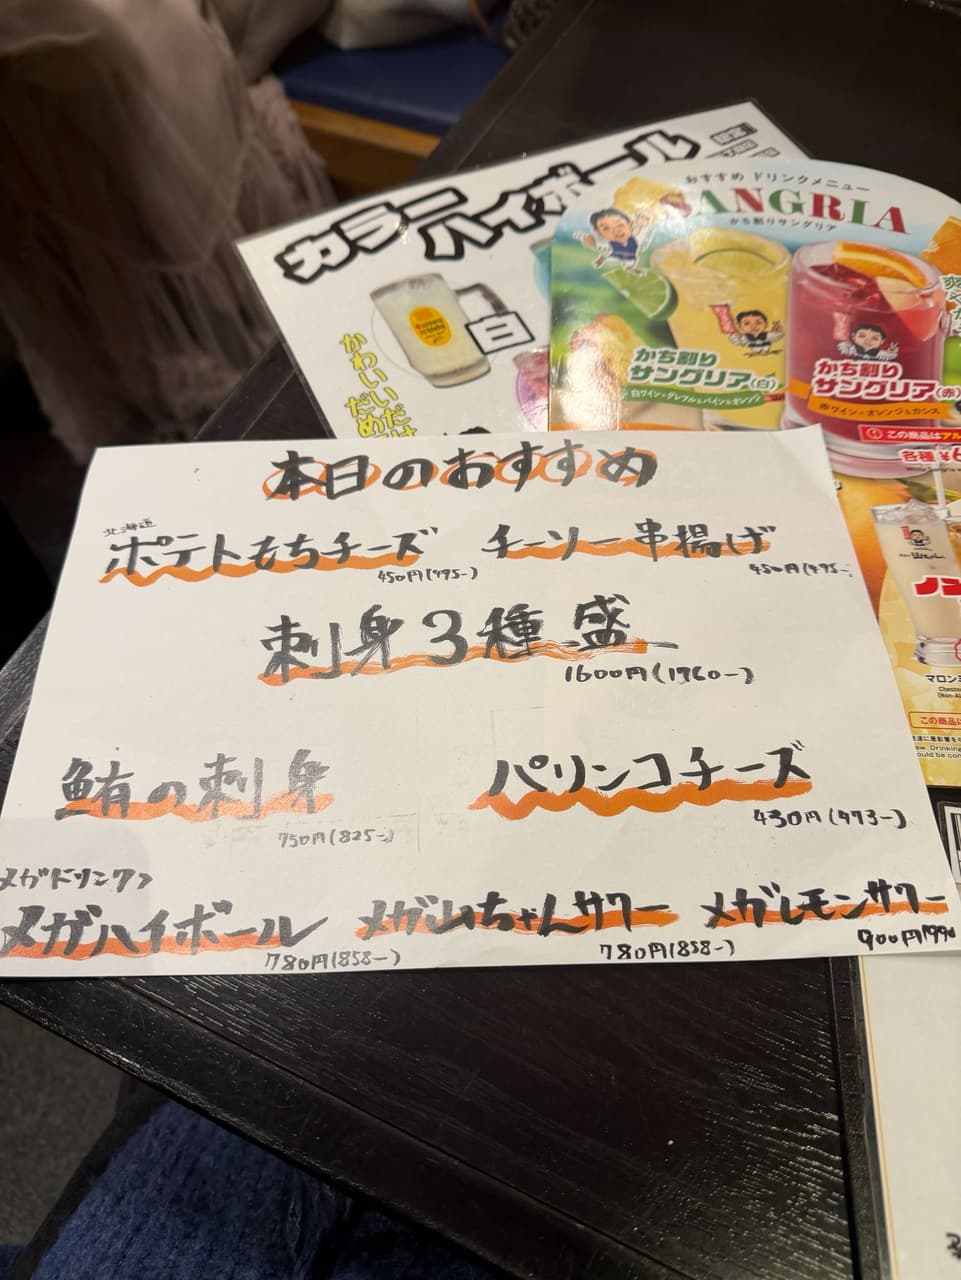 カラー
ハイボール
限定
白
おすすめ ドリンクメニュー
SANGRIA
かち割りサングリア
かち割り
サングリア(白)
白ワイン×グレフル&パイン&オレンジ
かち割り
サングリア(赤)
赤ワイン×オレンジ&カシス
この商品はアル
各種¥6
マロン
この商品は
本日のおすすめ
北海道
ポテトもちチーズ
450円(495-)
チーソー串揚げ
450円(495-
刺身3種盛
1600円(1760-)
鮪の刺身
750円(825-)
パリンコチーズ
430円(473-)
メガドリンク
メガハイボール
780円(858-)
780円(858-)
メガレモンサワー
900円(990